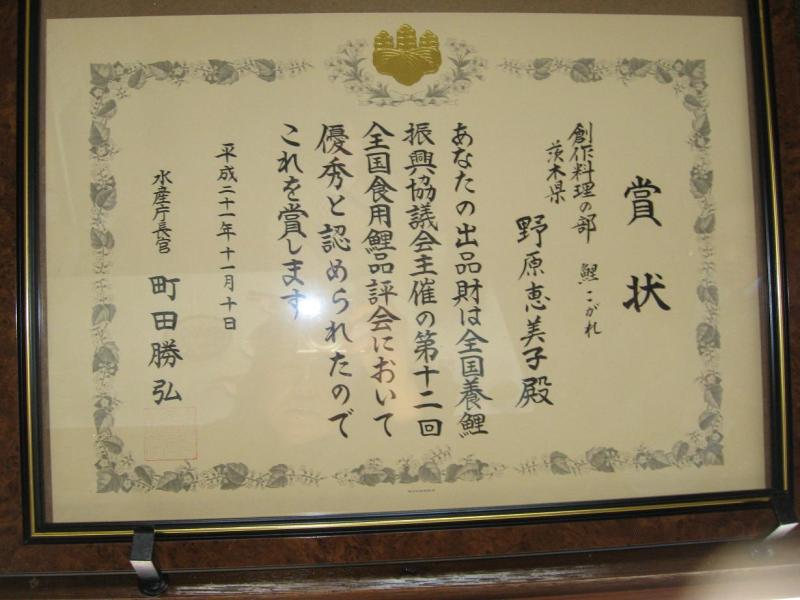 賞状
創作料理の部 鯉こがれ
茨木県
野原恵美子殿
あなたの出品財は全国養鯉
振興協議会主催の第十二回
全国食用鯉品評会において
優秀と認められたので
これを賞します
平成二十一年十一月十日
水産庁長官 町田勝弘